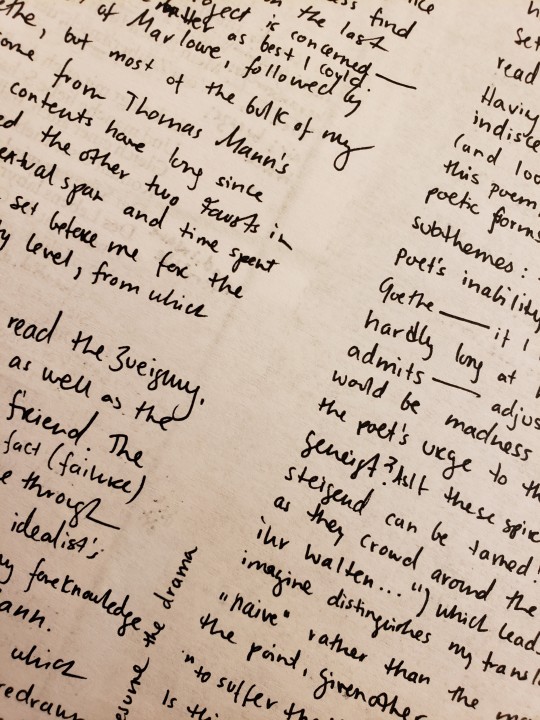 find
oject is concerned —
on the last
matter as best I could.
of Marlowe, followed by
ethe, but most of the bulk of my
ome from Thomas Mann's
contents have long since
ed the other two Fausts in
extual span and time spent
set before me for the
ly level, from which
read the Zueignung.
as well as the
friend. The
fact (failure)
e through
idealist's
my foreknowledge
ann.
which
redraw
esume the drama
set
read
Having
indisce
(and loo
this poem
poetic forms
subthemes:
poet's inability
Goethe — if I
hardly long at
admits — adjus
would be madness
the poet's urge to th
geneigt? As if these spir
steigend can be tamed!
as they crowd around the
ihr walten... ") which leads
imagine distinguishes my transl
"naive" rather than the
the point, given other
"to suffer th
Is thi